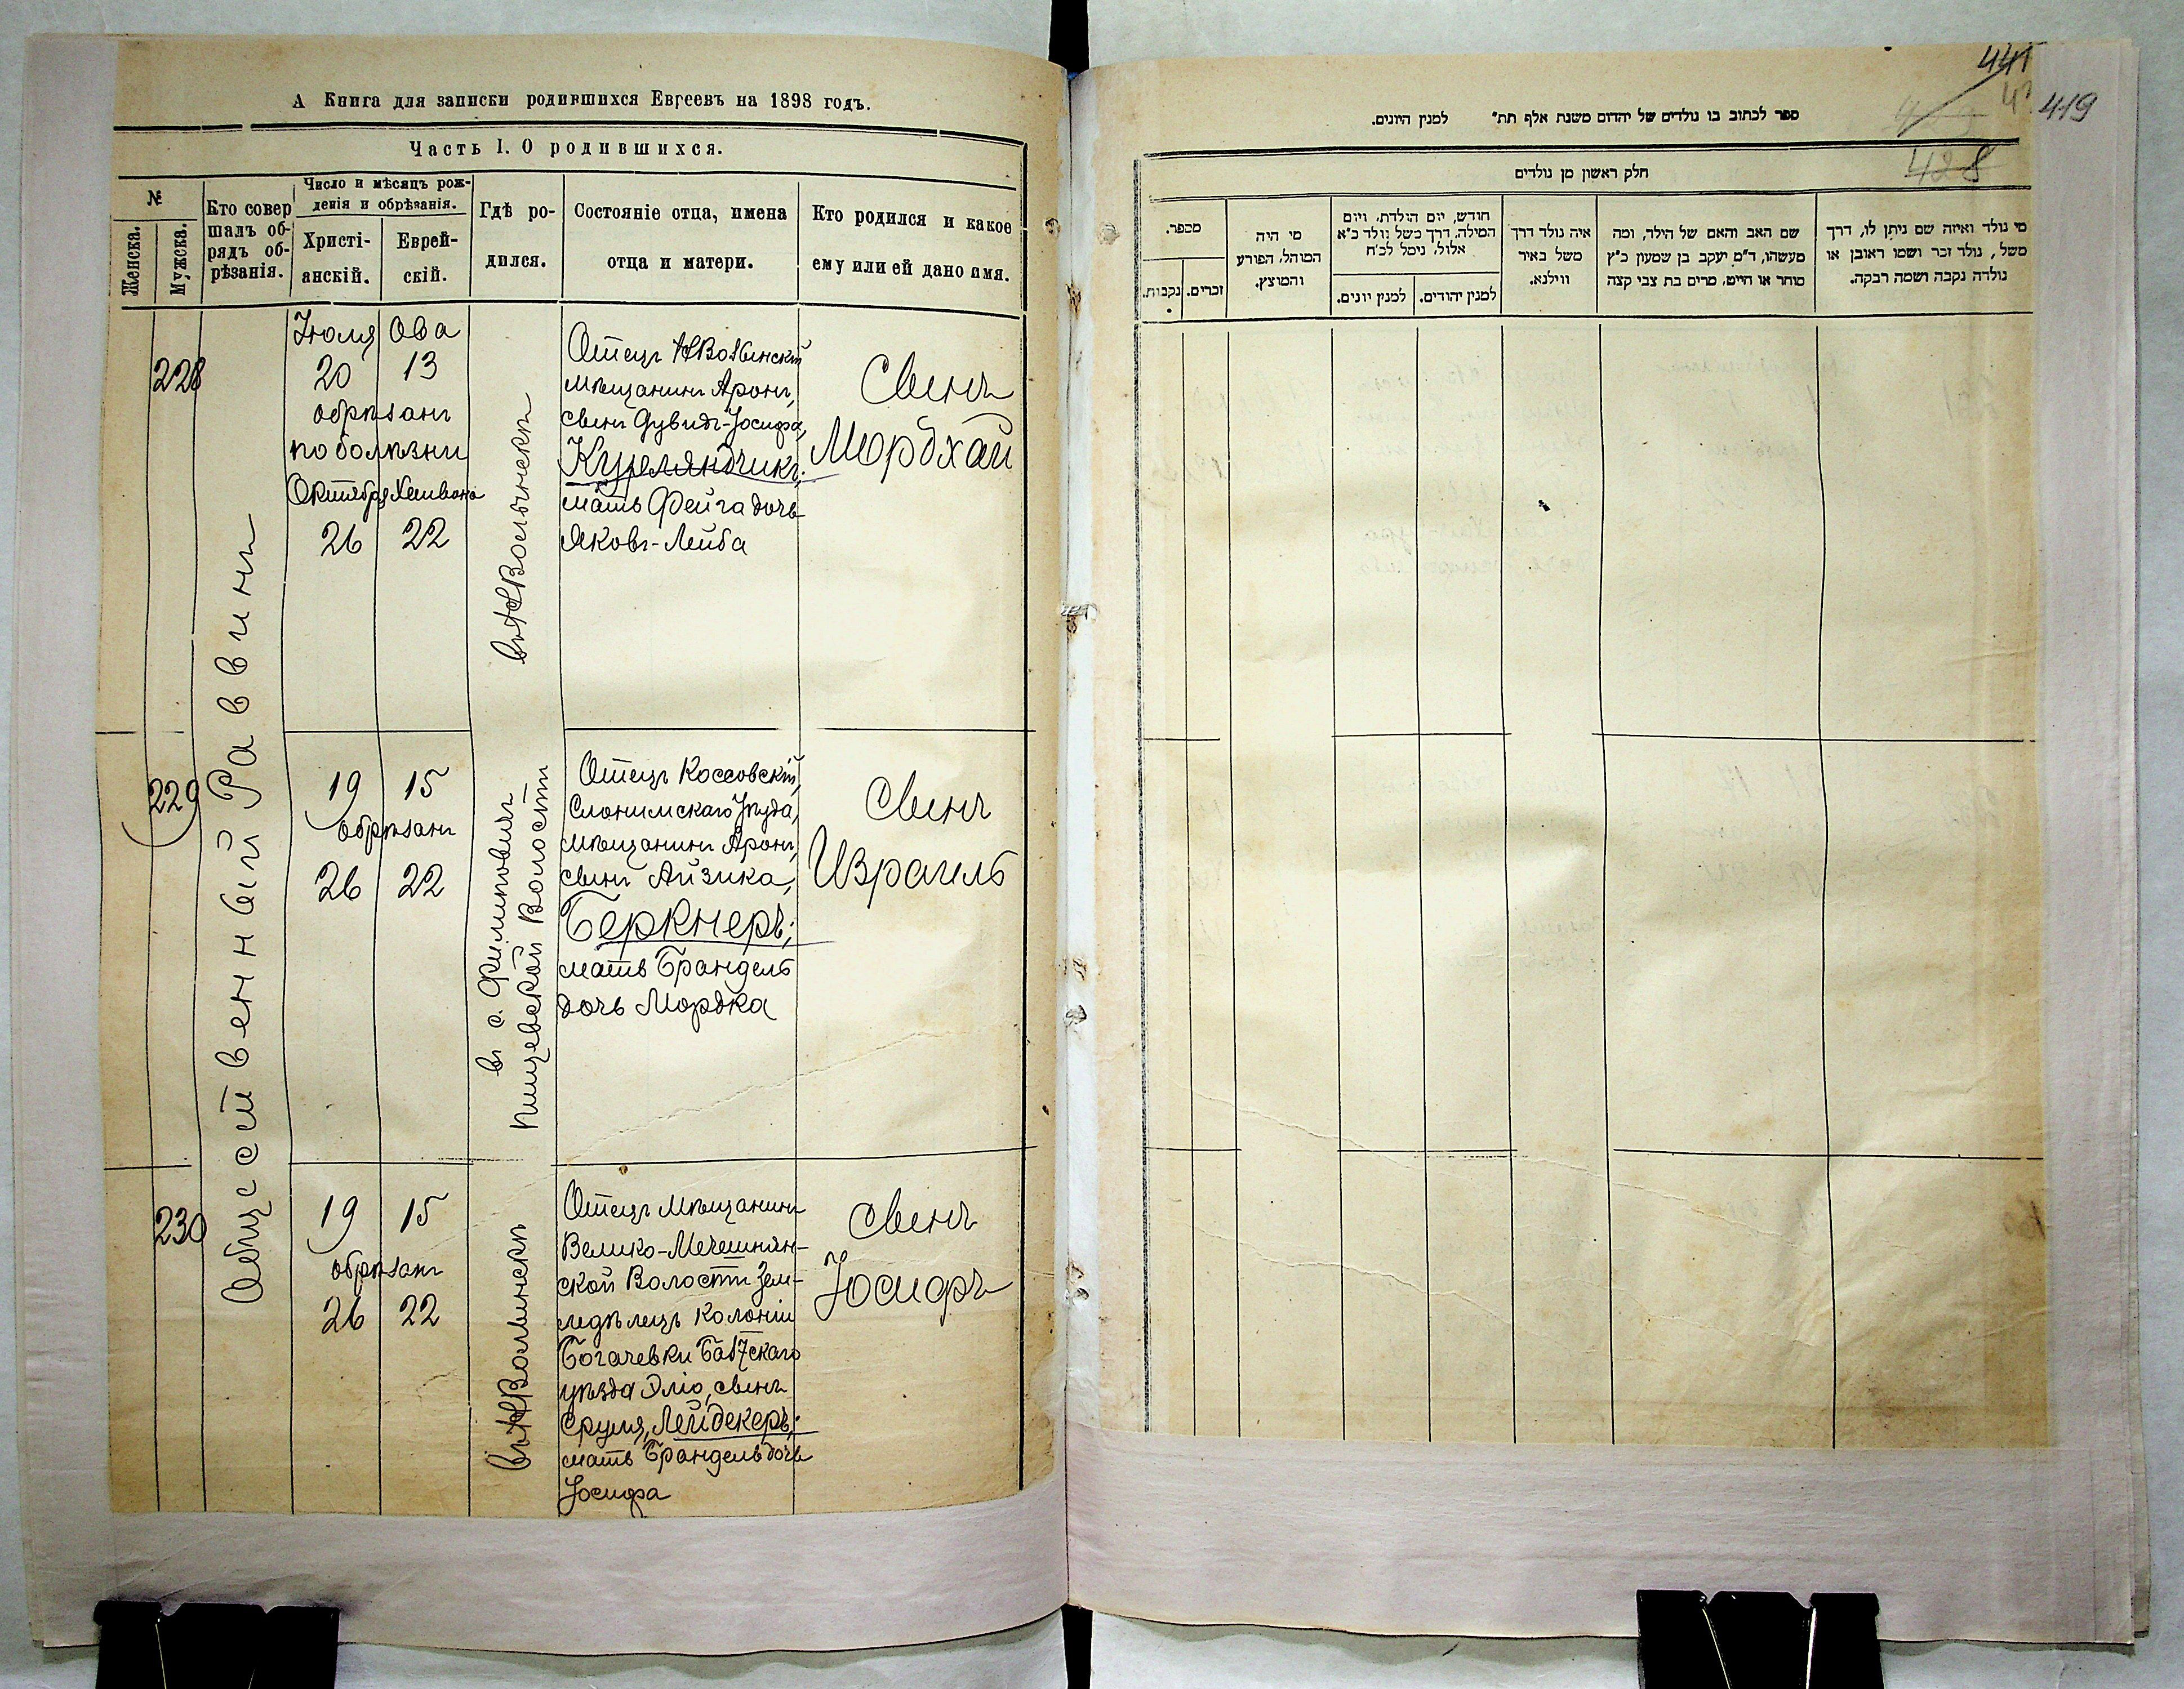 А Книга для записки родившихся Евреевъ на 1898 годъ.
Часть I. О родившихся.
№
Женска.
Мужска.
Кто совершалъ
обрядъ обрѣзанія.
Число и мѣсяцъ рож-
денія и обрѣзанія.
Христі-
анскій.
Еврей-
скій.
Гдѣ ро-
дился.
Состояніе отца, имена
отца и матери.
Кто родился и какое
ему или ей дано имя.
Общественный Раввинъ
228
Іюля Ова
20 13
обрѣзанъ
по болѣзни
Октября Хешвона
26 22
въ НВолынскѣ
Отецъ НВолынскій
мѣщанинъ Аронъ,
сынъ Дувидъ-Іосифа,
Курляндчикъ;
мать Фейга дочь
Яковъ-Лейба
Сынъ
Мордхай
229
19 15
обрѣзанъ
26 22
въ с. Филиповичъ
Пищевской Волости
Отецъ Коссовскій,
Слонимскаго Уѣзда,
мѣщанинъ Аронъ,
сынъ Айзика,
Беркнеръ;
мать Брандель
дочь Мордка
Сынъ
Израиль
230
19 15
обрѣзанъ
26 22
въ НВолынскѣ
Отецъ мѣщанинъ
Велико-Мечешнян-
ской Волости Зем-
ледѣлецъ Колоніи
Богачевки Балтскаго
уѣзда Эліо, сынъ
Сруля, Лейдекеръ;
мать Брандель дочь
Іосифа
Сынъ
Іосифъ
441
419
428
ספר לכתוב בו נולדים של יהדום משנת אלף תת" למנין היונים.
חלק ראשון מן נולדים
מספר.
זכרים.
נקבות.
מי היה
המוהל, הפורע
והמוצץ.
חודש, יום הולדת, ויום
המילה, דרך משל נולד כ"א
אלול, נימל לכ"ח
למנין יונים.
למנין יהודים.
איה נולד דרך
משל באיר
ווילנא.
שם האב והאם של הילד, ומה
מעשהו, ד"מ יעקב בן שמעון כ"ץ
סוחר או חייט, מרים בת צבי קצה
מי נולד ואיזה שם ניתן לו, דרך
משל, נולד זכר ושמו ראובן או
נולדה נקבה ושמה רבקה.